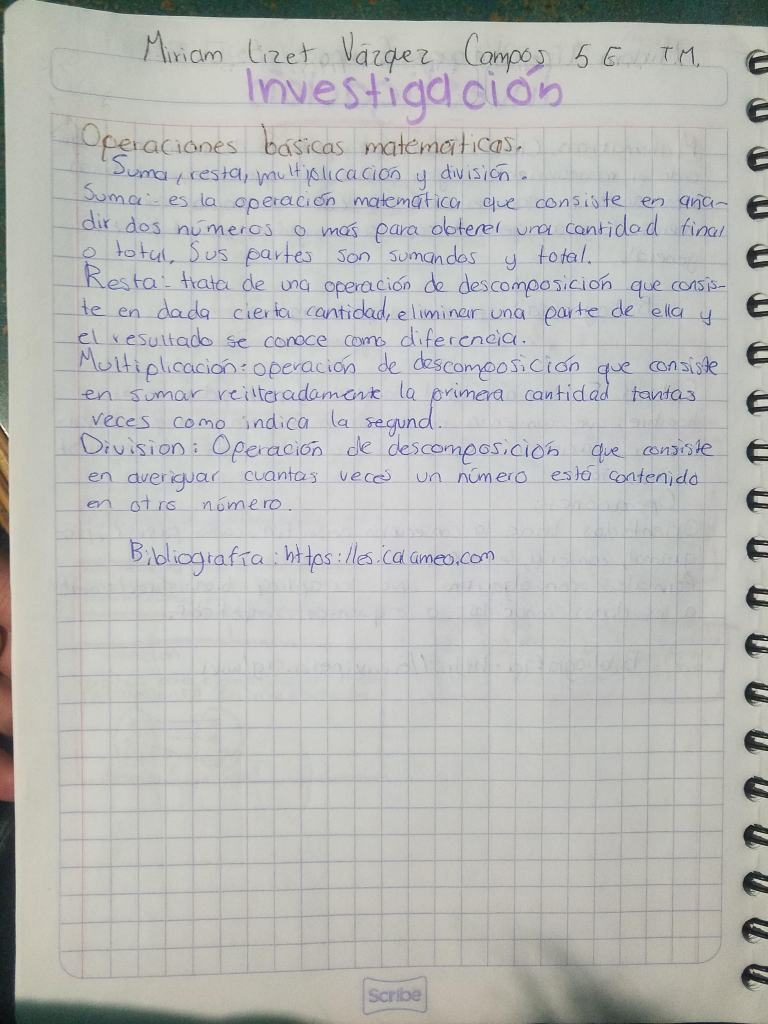 Miriam Lizet Vázquez Campos 5 E T.M.
Investigación
Operaciones básicas matemáticas.
Suma, resta, multiplicación y división.
Suma: es la operación matemática que consiste en aña-
dir dos números o más para obtener una cantidad final
o total. Sus partes son sumandos y total.
Resta: trata de una operación de descomposición que consis-
te en dada cierta cantidad, eliminar una parte de ella y
el resultado se conoce como diferencia.
Multiplicación: operación de descomposición que consiste
en sumar reilteradamente la primera cantidad tantas
veces como indica la segund.
Division: Operación de descomposición que consiste
en averiguar cuantas veces un número está contenido
en otro número.
Bibliografía: https://es.calameo.com
Scribe